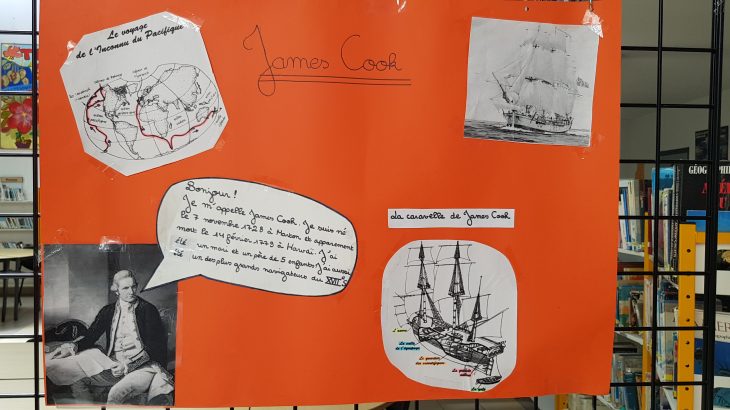 Le voyage
de l'Inconnu du Pacifique
James Cook
Bonjour!
Je m'appelle James Cook. Je suis né
le 7 novembre 1728 à Marton et apparement
mort le 14 février 1779 à Hawaï. J'ai
été un mari et un père de 5 enfants. J'ai aussi
été un des plus grands navigateurs du XVII°S
La caravelle de James Cook
La salle
de l'équipage
GÉOGRAPHI